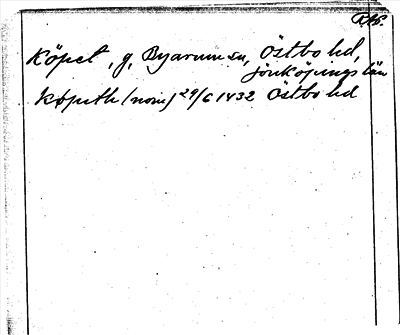 Köpet, g, Byarum sn, Östbo hd,
Jönköpings län
køpith (nom) 29/6 1432 Östbo hd